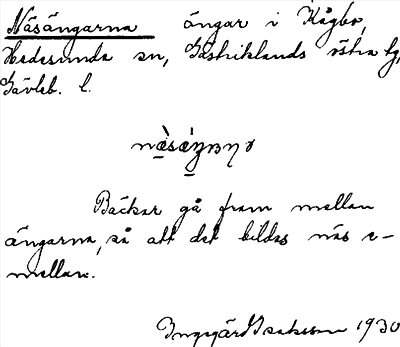 Näsängarna ängar i Kågbo,
Hedesunda sn, Gästriklands östra tg,
Gävleb. l.
Bäckar gå fram mellan
ängarna, så att det bildas näs e-
mellan.
Ingvärd Isaksson 1930